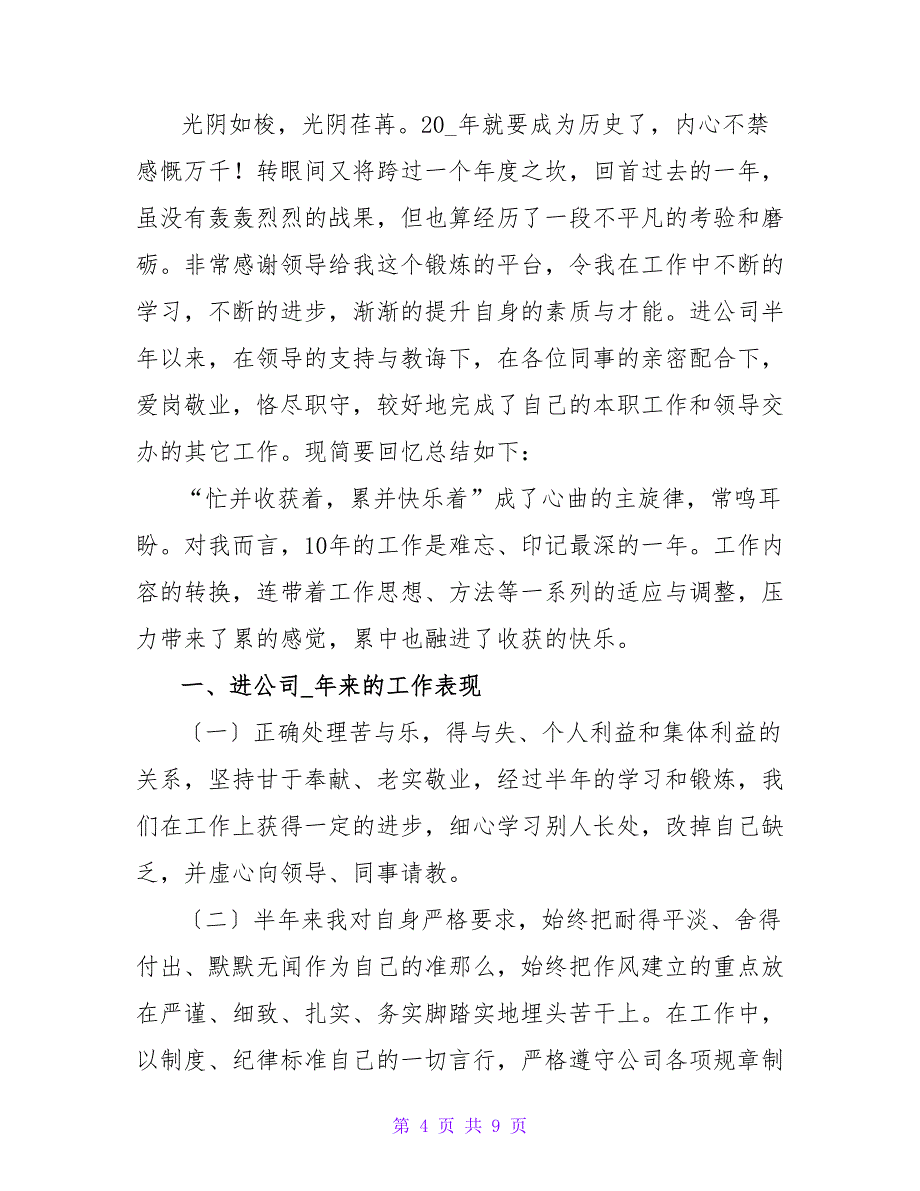 光阴如梭，光阴荏苒。20_年就要成为历史了，内心不禁
感慨万千！转眼间又将跨过一个年度之坎，回首过去的一年，
虽没有轰轰烈烈的战果，但也算经历了一段不平凡的考验和磨
砺。非常感谢领导给我这个锻炼的平台，令我在工作中不断的
学习，不断的进步，渐渐的提升自身的素质与才能。进公司半
年以来，在领导的支持与教诲下，在各位同事的亲密配合下，
爱岗敬业，恪尽职守，较好地完成了自己的本职工作和领导交
办的其它工作。现简要回忆总结如下：
“忙并收获着，累并快乐着”成了心曲的主旋律，常鸣耳
盼。对我而言，10年的工作是难忘、印记最深的一年。工作内
容的转换，连带着工作思想、方法等一系列的适应与调整，压
力带来了累的感觉，累中也融进了收获的快乐。
一、进公司_年来的工作表现
〔一〕正确处理苦与乐，得与失、个人利益和集体利益的
关系，坚持甘于奉献、老实敬业，经过半年的学习和锻炼，我
们在工作上获得一定的进步，细心学习别人长处，改掉自己缺
乏，并虚心向领导、同事请教。
〔二〕半年来我对自身严格要求，始终把耐得平淡、舍得
付出、默默无闻作为自己的准那么，始终把作风建立的重点放
在严谨、细致、扎实、务实脚踏实地埋头苦干上。在工作中，
以制度、纪律标准自己的一切言行，严格遵守公司各项规章制
第 4 页 共 9 页